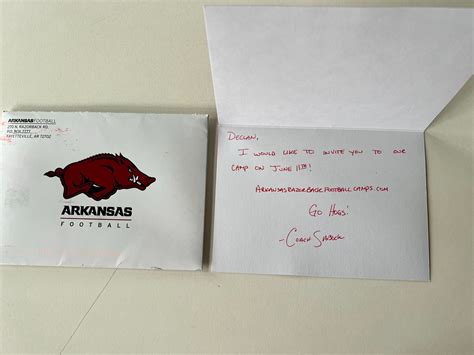 ARKANSAS FOOTBALL
FAYETTEVILLE, AR 72702
ARKANSAS
FOOTBALL
DECLAN,
I WOULD LIKE TO INVITE YOU TO OUR
CAMP ON JUNE 11TH!
ARKANSASRAZORBACKFOOTBALLCAMPS.COM
GO HOGS!
-COACH